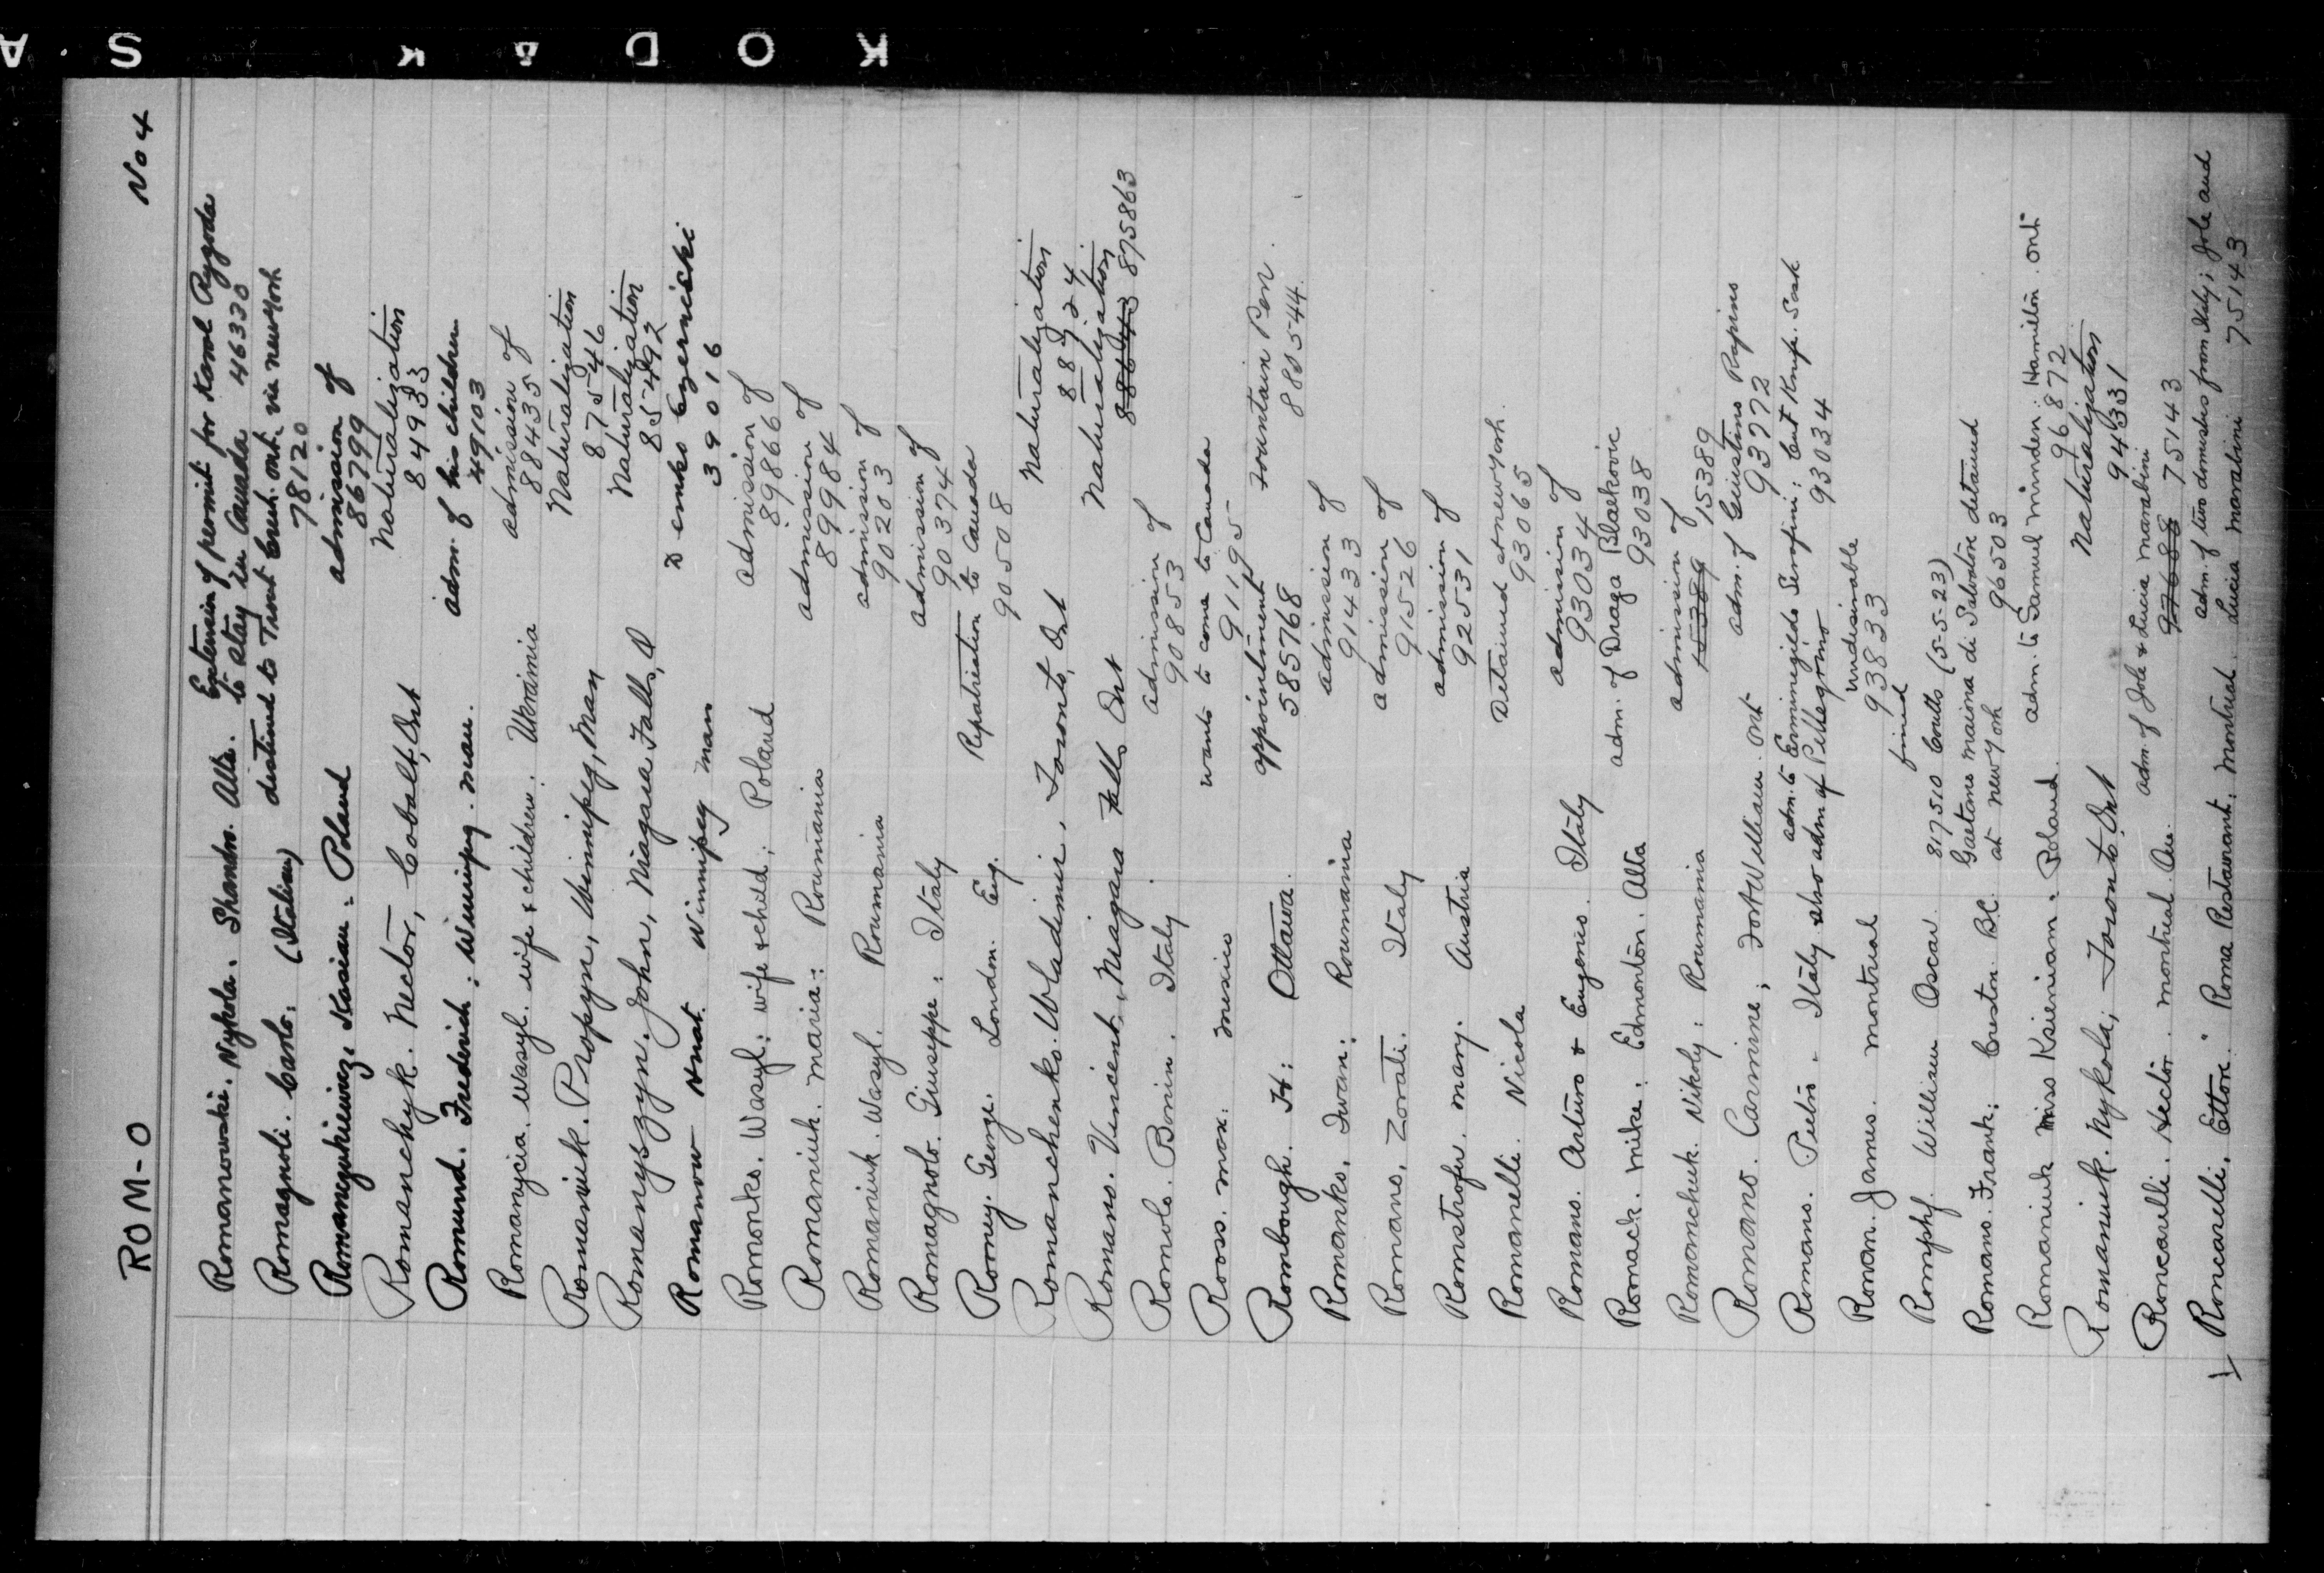 KODAK · SA
ROM-O No 4
Romanowski. Nykola. Shandro. Alta. Extension of permit for Karol Rygoda
to stay in Canada 46330
Romagnoli. Carlo: (Italian) destined to Trout Creek. ont. via new york
78120
Kasian: Poland admission of
86799
Romanchyk. Nector, Cobalt, Ont Naturalization
84933
Romund. Frederick; Winnipeg. man. adm. of his children
49103
Romanycia. Wasyl. wife & children: Ukrainia admission of
884435
Romaniuk. Propyn, Winnipeg, Man Naturalization
87546
Romanyszyn. John, Niagara Falls, O Naturalization
85492
Romanow Winnipeg man
39016
Romonko. Wasyl: wife & child; Poland admission of
89866
Romaniuk. maria: Roumania admission of
89984
Romaniuk. Wasyl. Roumania admission of
90203
Romagnolo. Giuseppe: Italy admission of
90374
Romey. George. London. Eng. Repatriation to Canada
90508
Romanchenko. Wladimir, Toronto, Ont Naturalization
88924
Romano. Vincent, Niagara Falls Ont Naturalization
875863
Romolo. Bonin. Italy admission of
90853
Rooss. max: mexico wants to come to Canada
91195
Rombough. H: Ottawa. appointment Fountain Pen.
585768 880544
Romanko. Iwan: Roumania admission of
91433
Romano. Zorati. Italy admission of
91526
Romstrofer. mary. Austria admission of
92531
Romanelli. Nicola Detained at new york.
93065
Romano. Arturo & Eugenio. Italy admission of
93034
Romack. mike: Edmonton. Alta adm. of Draga Blaskovic
93038
Romonchuk. Nikoly: Roumania admission of
15389 15389
Romano. Carmine; Fort William. ont adm. of Giustino Rapino
93772
Romano. Pietro - Italy adm. to Ermenegildo Serafini: Cut Knife. Sask
also adm of Pellegrino 93034
Roman. James. montreal undesirable
93833
Romphf. William Oscar. fined
817510 Coutts (5-5-23)
Romano. Frank: Creston. B.C. Gaetano maiona di Salvatore detained
at new york 96503
Romaniuk miss Ksieniam. Poland. adm. to Samuel minden: Hamilton. ont
96872
Romaniuk. Nykola; Toronto, Ont Naturalization
94331
Roncarelli. Hector. montreal Que. adm. of Jole & Lucia marabini
97688 75143
Roncarelli. Ettore. " Roma Restaurant. montreal. adm. of two domestics from Italy; Jole and
Lucia marabini 75143